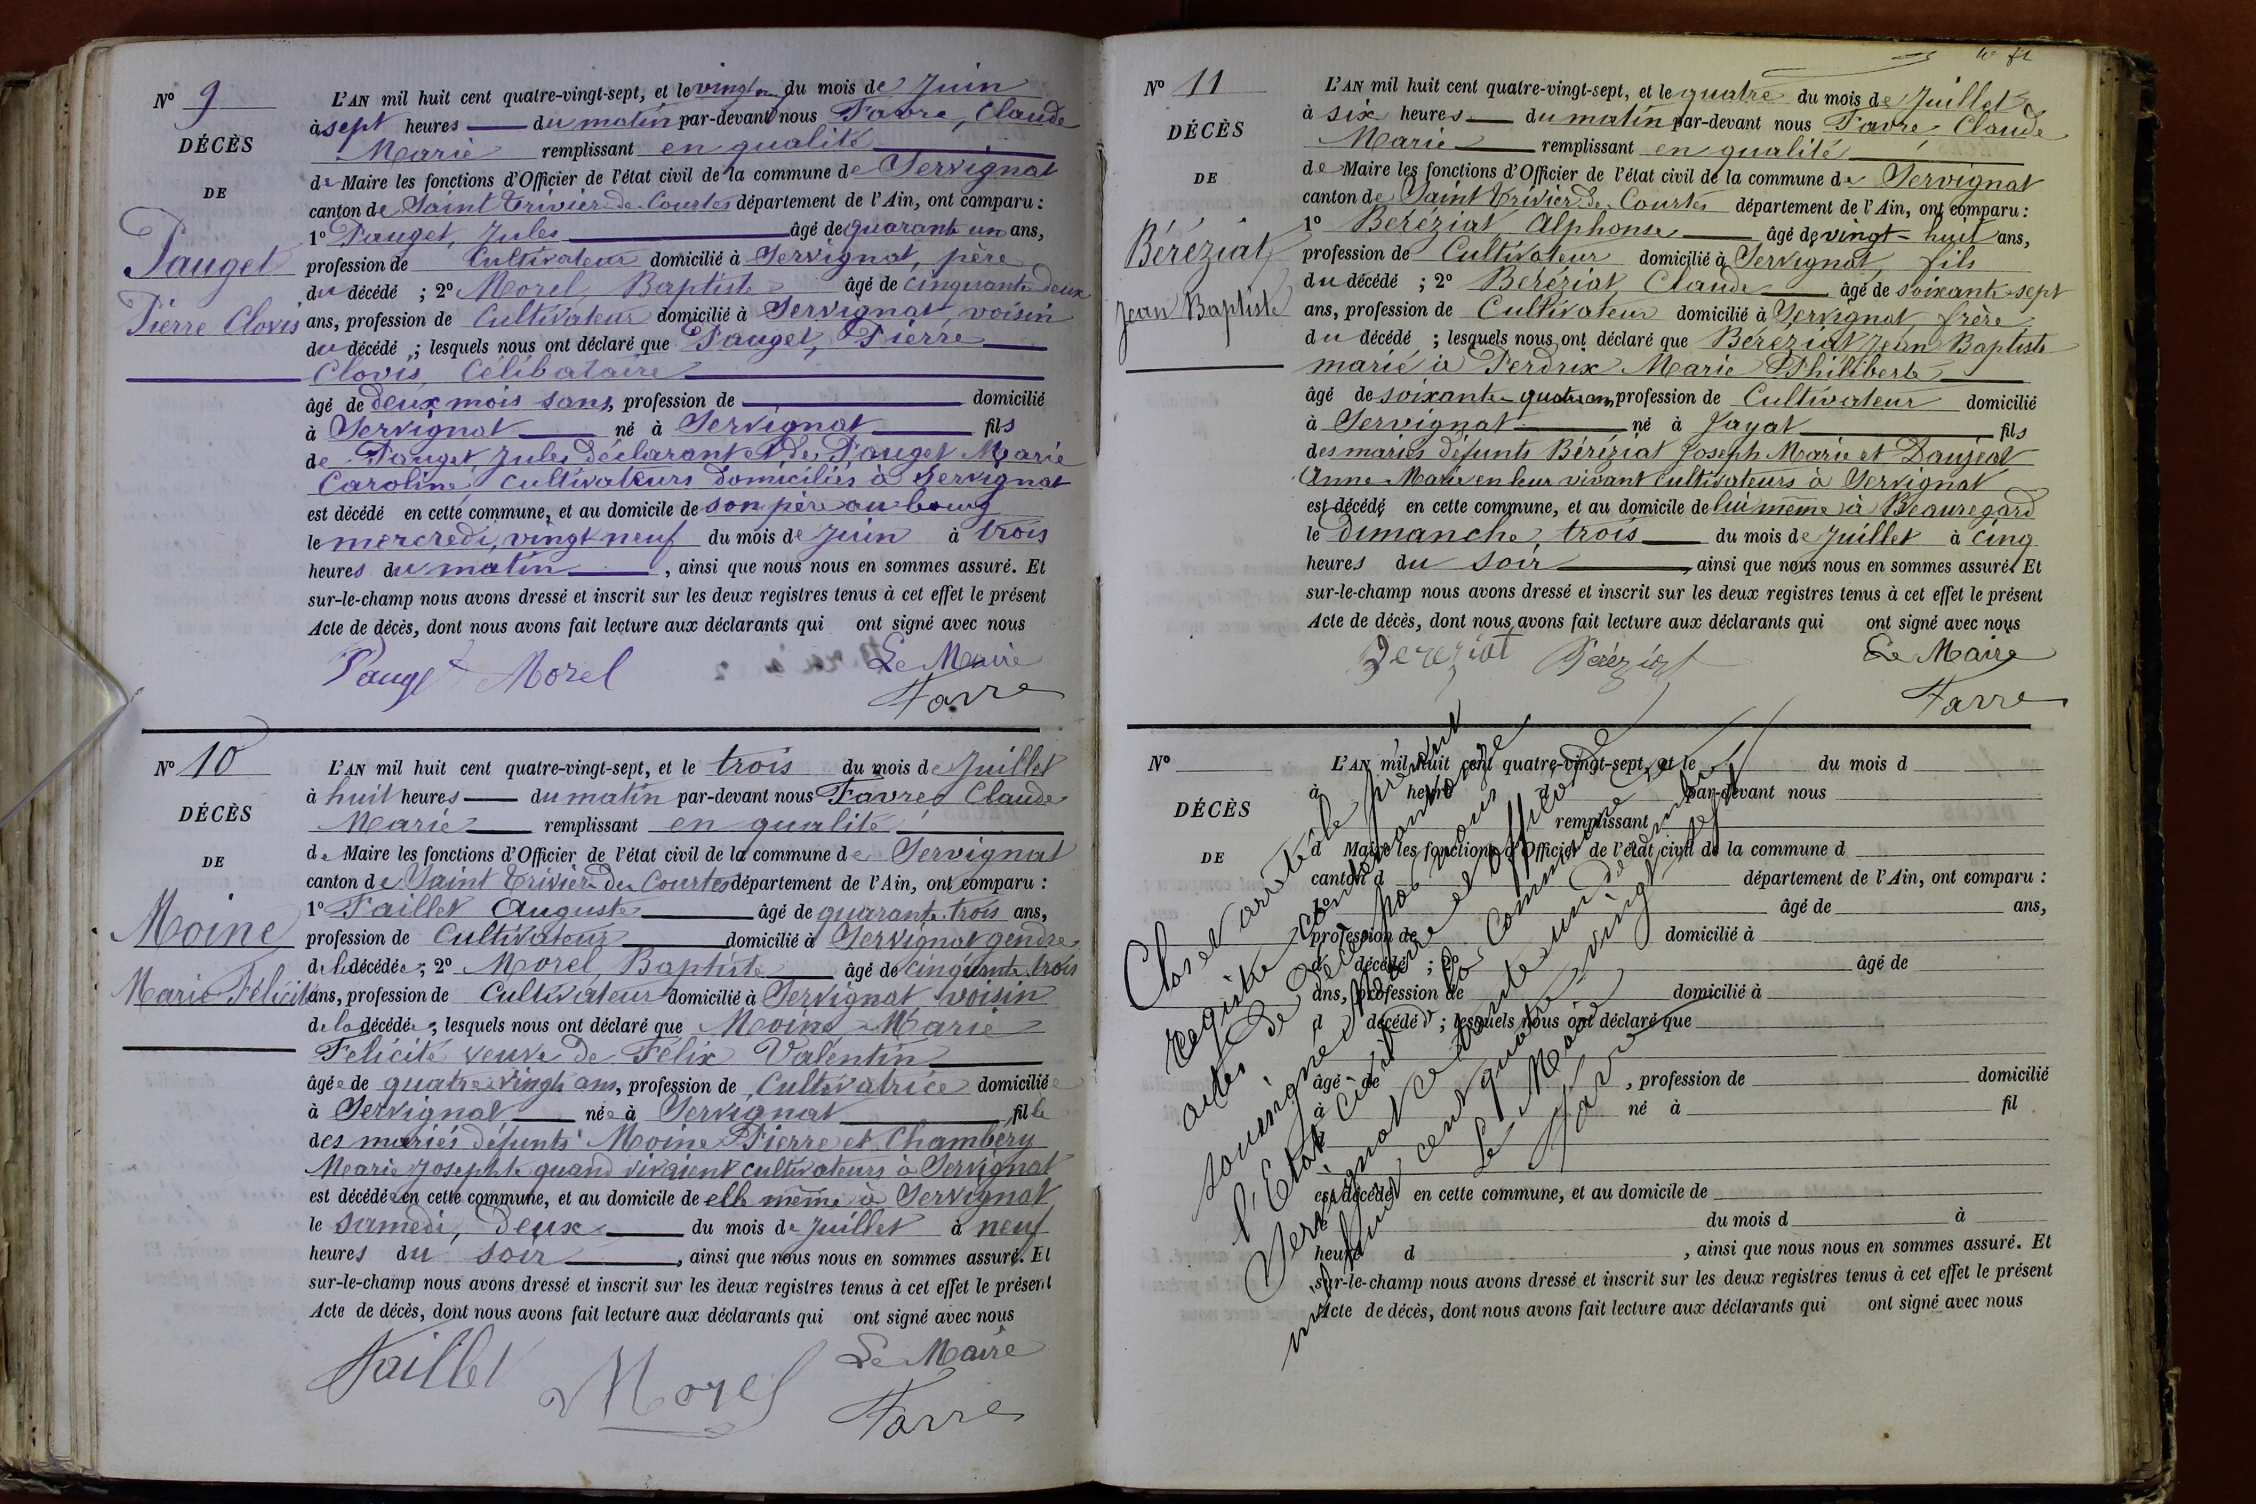 N° 9
DÉCÈS
DE
Pauget
Pierre Clovis
L'AN mil huit cent quatre-vingt-sept, et le du mois de Juin
à sept heures du matin par-devant nous Favre, Claude
Marie remplissant en qualité
de Maire les fonctions d'Officier de l'état civil de la commune de Servignat
canton de Saint Trivier de Courtes département de l'Ain, ont comparu :
1° Pauget, Jules âgé de quarante un ans,
profession de Cultivateur domicilié à Servignat, père
du décédé ; 2° Morel, Baptiste âgé de cinquante deux
ans, profession de Cultivateur domicilié à Servignat, voisin
du décédé ; lesquels nous ont déclaré que Pauget, Pierre
Clovis, Célibataire
âgé de deux mois sans, profession de domicilié
à Servignat né à Servignat fils
de Pauget Jules déclarant et de Pauget Marie
Caroline, cultivateurs domiciliés à Servignat
est décédé en cette commune, et au domicile de son père au bourg
le mercredi, vingt neuf du mois de Juin à trois
heures du matin , ainsi que nous nous en sommes assuré. Et
sur-le-champ nous avons dressé et inscrit sur les deux registres tenus à cet effet le présent
Acte de décès, dont nous avons fait lecture aux déclarants qui ont signé avec nous
Pauget Morel Le Maire
Favre
N° 10
DÉCÈS
DE
Moine
Marie Félicité
L'AN mil huit cent quatre-vingt-sept, et le trois du mois de Juillet
à huit heures du matin par-devant nous Favre, Claude
Marie remplissant en qualité
de Maire les fonctions d'Officier de l'état civil de la commune de Servignat
canton de Saint Trivier de Courtes département de l'Ain, ont comparu :
1° Paillet Auguste âgé de quarante trois ans,
profession de Cultivateur domicilié à Servignat gendre
de la décédée ; 2° Morel, Baptiste âgé de cinquante trois
ans, profession de Cultivateur domicilié à Servignat voisin
de la décédée ; lesquels nous ont déclaré que Moine, Marie
Félicité veuve de Félix Valentin
âgée de quatre vingts ans, profession de Cultivatrice domiciliée
à Servignat née à Servignat fille
des mariés défunts Moine Pierre et Chambéry
Marie Josephte quand vivaient cultivateurs à Servignat
est décédée en cette commune, et au domicile de elle même à Servignat
le samedi, deux du mois de Juillet à neuf
heures du soir , ainsi que nous nous en sommes assuré. Et
sur-le-champ nous avons dressé et inscrit sur les deux registres tenus à cet effet le présent
Acte de décès, dont nous avons fait lecture aux déclarants qui ont signé avec nous
Paillet Morel Le Maire
Favre
N° 11
DÉCÈS
DE
Béréziat
Jean Baptiste
L'AN mil huit cent quatre-vingt-sept, et le quatre du mois de Juillet
à six heures du matin par-devant nous Favre Claude
Marie remplissant en qualité
de Maire les fonctions d'Officier de l'état civil de la commune de Servignat
canton de Saint Trivier de Courtes département de l'Ain, ont comparu :
1° Beréziat, Alphonse âgé de vingt-huit ans,
profession de Cultivateur domicilié à Servignat, fils
du décédé ; 2° Beréziat, Claude âgé de soixante-sept
ans, profession de Cultivateur domicilié à Servignat, frère
du décédé ; lesquels nous ont déclaré que Béréziat Jean Baptiste
marié à Perdrix Marie Philiberte
âgé de soixante-quatre ans, profession de Cultivateur domicilié
à Servignat né à Jayat fils
des mariés défunts Béréziat Joseph Marie et Daujeat
Anne Marie en leur vivant cultivateurs à Servignat
est décédé en cette commune, et au domicile de lui même à Beauregard
le Dimanche, trois du mois de Juillet à cinq
heures du soir , ainsi que nous nous en sommes assuré. Et
sur-le-champ nous avons dressé et inscrit sur les deux registres tenus à cet effet le présent
Acte de décès, dont nous avons fait lecture aux déclarants qui ont signé avec nous
Bereziat Béréziat Le Maire
Favre
N°
DÉCÈS
DE
L'AN mil huit cent quatre-vingt-sept, et le du mois d
à heure d par-devant nous
remplissant
d Maire les fonctions d'Officier de l'état civil de la commune d
canton d département de l'Ain, ont comparu :
1° âgé de ans,
profession de domicilié à
d décédé ; 2° âgé de
ans, profession de domicilié à
d décédé ; lesquels nous ont déclaré que
âgé de , profession de domicilié
à né à fil
est décédé en cette commune, et au domicile de
le du mois d à
heure d , ainsi que nous nous en sommes assuré. Et
sur-le-champ nous avons dressé et inscrit sur les deux registres tenus à cet effet le présent
Acte de décès, dont nous avons fait lecture aux déclarants qui ont signé avec nous
Clos et arrêté le présent
registre contenant onze
actes de décès par nous
soussigné Maire et officier de
l'Etat civil de la Commune de
Servignat ce trente un décembre
mil huit cent quatre-vingt sept
Le Maire
Favre